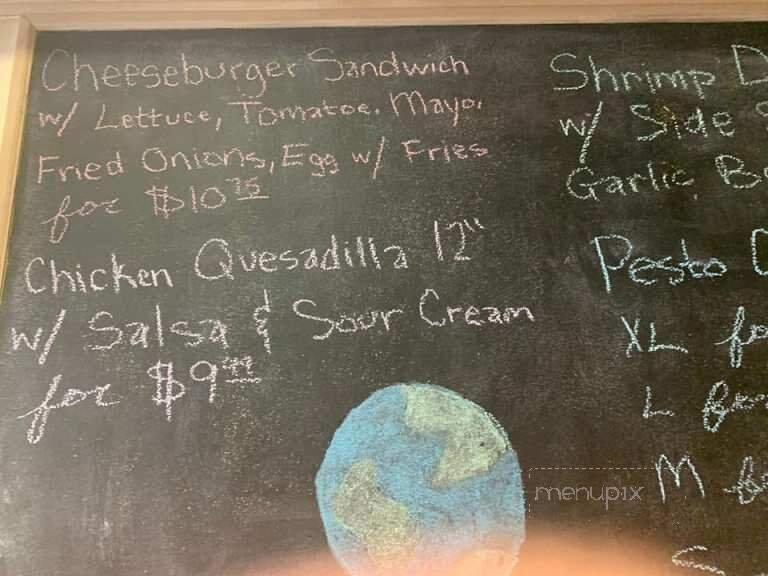 Cheeseburger Sandwich
w/ Lettuce, Tomatoe. Mayo.
Fried Onions, Egg w/ Fries
for $10 75
Chicken Quesadilla 12"
w/ Salsa & Sour Cream
for $9 99
Shrimp D
w/ Side
Garlic B
Pesto C
XL fo
L for
M fo
menupix